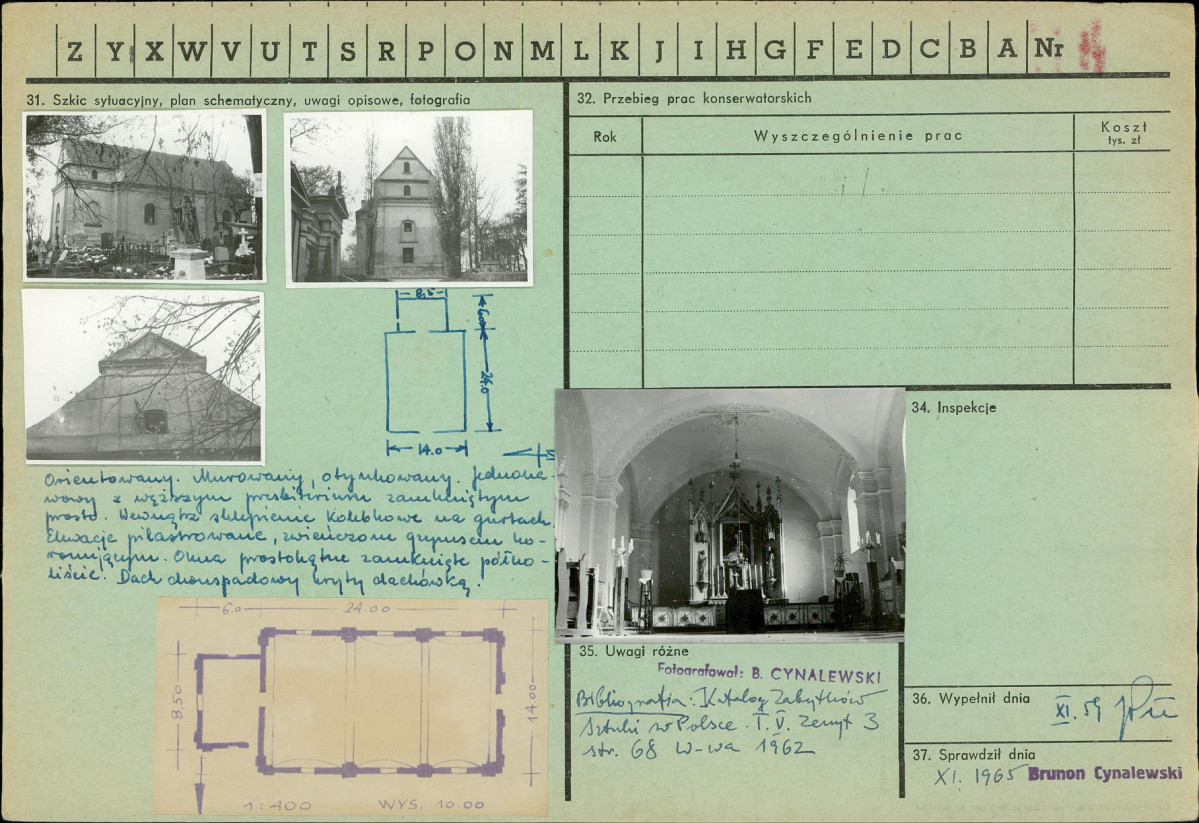 Z Y X W V U T S R P O N M L K J I H G F E D C B A Nr
31. Szkic sytuacyjny, plan schematyczny, uwagi opisowe, fotografia
8,5
6.0
24.0
14.0
Orientowany. Murowany, otynkowany. Jednona-
wowy z węższym prezbiterium zamkniętym
prosto. Wewnątrz sklepienie kolebkowe na gurtach
Elewacje pilastrowane, zwieńczone gzymsem ko-
ronującym. Okna prostokątne zamknięte półko-
liście. Dach dwuspadowy kryty dachówką.
6.0 24.00
8.50
14.00
1:400 WYS. 10.00
32. Przebieg prac konserwatorskich
Rok Wyszczególnienie prac Koszt
tys. zł
34. Inspekcje
35. Uwagi różne
Fotografował: B. CYNALEWSKI
Bibliografia: Katalog Zabytków
Sztuki w Polsce. T. V. Zeszyt 3
str. 68 W-wa 1962
36. Wypełnił dnia
XI. 59
37. Sprawdził dnia
XI. 1965 Brunon Cynalewski